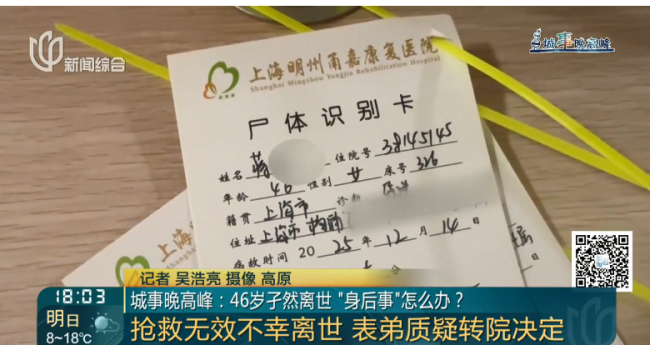 新闻综合
城事晚高峰
上海明州甬嘉康复医院
Shanghai Mingzhou Yongjia Rehabilitation Hospital
尸体识别卡
姓名 蒋 住院号 38145145
年龄 46 性别 女 床号 326
籍贯 上海市 诊断
住址 上海市
病故时间 2025年12月14日
分
记者 吴浩亮 摄像 高原
18:03
城事晚高峰：46岁孑然离世 "身后事"怎么办？
明日
8~18℃
抢救无效不幸离世 表弟质疑转院决定